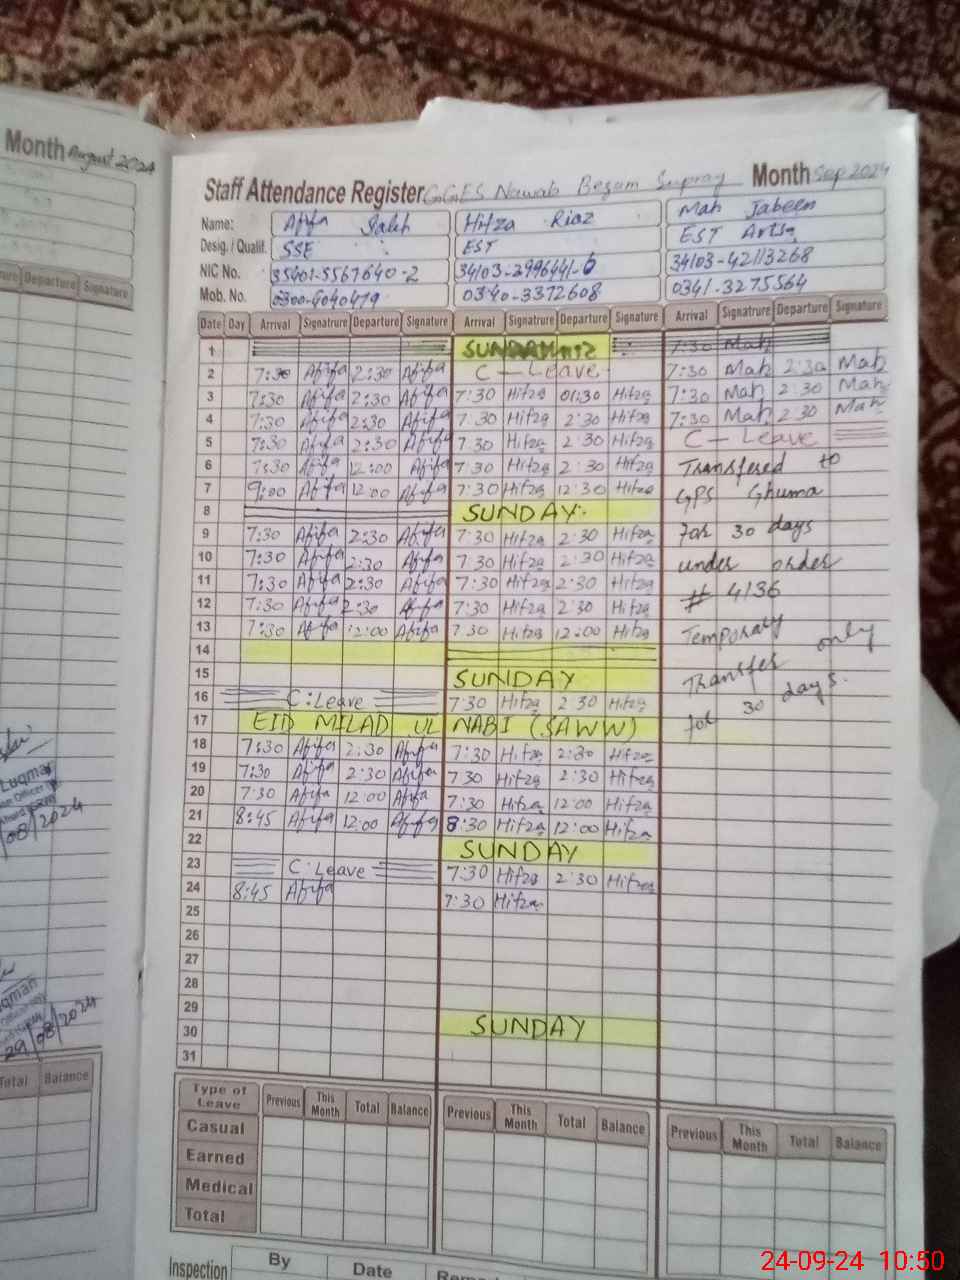 Month August 2024
Staff Attendance Register GGES Nawab Begam Month Sep 2024
Name: Afifa Saleh Hifza Riaz Mah Jabeen
Desig. / Qualif. SSE EST EST Arts
NIC No. 35401-5567640-2 34103-2996441-6 34103-42113268
Mob. No. 0300-4040479 0340-3372608 0341-3275564
Departure Signature
Date Day Arrival Signatrure Departure Signature Arrival Signatrure Departure Signature Arrival Signatrure Departure Signature
1 SUNDAY 7:30 Mah
2 7:30 Afifa 2:30 Afifa C - Leave 7:30 Mah 2:30 Mah
3 7:30 Afifa 2:30 Afifa 7:30 Hifza 01:30 Hifza 7:30 Mah 2:30 Mah
4 7:30 Afifa 2:30 Afifa 7:30 Hifza 2:30 Hifza 7:30 Mah 2:30 Mah
5 7:30 Afifa 2:30 Afifa 7:30 Hifza 2:30 Hifza C - Leave
6 7:30 Afifa 12:00 Afifa 7:30 Hifza 2:30 Hifza Transfered to
7 9:00 Afifa 12:00 Afifa 7:30 Hifza 12:30 Hifza GPS Ghuma
8 SUNDAY
9 7:30 Afifa 2:30 Afifa 7:30 Hifza 2:30 Hifza for 30 days
10 7:30 Afifa 2:30 Afifa 7:30 Hifza 2:30 Hifza under order
11 7:30 Afifa 2:30 Afifa 7:30 Hifza 2:30 Hifza # 4136
12 7:30 Afifa 2:30 Afifa 7:30 Hifza 2:30 Hifza
13 7:30 Afifa 12:00 Afifa 7:30 Hifza 12:00 Hifza Temporary only
14
15 SUNDAY Transfer
16 C:Leave 7:30 Hifza 2:30 Hifza for 30 days.
17 EID MILAD UL NABI (SAWW)
18 7:30 Afifa 2:30 Afifa 7:30 Hifza 2:30 Hifza
19 7:30 Afifa 2:30 Afifa 7:30 Hifza 2:30 Hifza
20 7:30 Afifa 12:00 Afifa 7:30 Hifza 12:00 Hifza
21 8:45 Afifa 12:00 Afifa 8:30 Hifza 12:00 Hifza
22 SUNDAY
23 C:Leave 7:30 Hifza 2:30 Hifza
24 8:45 Afifa 7:30 Hifza
25
26
27
28
29 SUNDAY
30
31
Luqman
08/2024
29/08/2024
Total Balance
Type of Leave Previous This Month Total Balance Previous This Month Total Balance Previous This Month Total Balance
Casual
Earned
Medical
Total
Inspection By Date
24-09-24 10:50